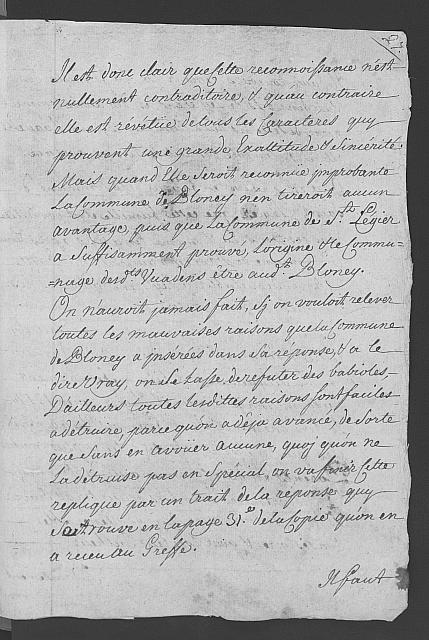 27.
Il est donc clair que cette reconnoissance n'est
nullement contraditoire, & qu'au contraire
elle est révétue de tous les Caracteres quy
prouvent une grande Exaltitude & Sincérité.
Mais quand Elle seroit reconnue improbante
La Commune de Bloney n'en tireroit aucun
avantage, puis que La Commune de St. Légier
a suffisamment prouvé, L'origine & le Commu-
=nage desdts Vuadens être audt. Bloney.
On n'auroit jamais fait, Sj on vouloit relever
toutes les mauvaises raisons que la Commune
de Bloney a jnserées dans Sa réponse, & a le
dire Vray, on se Lasse, de refuter des babioles,
D'ailleurs toutes lesdittes raisons sont faciles
a détruire, parce qu'on a déja avancé, de sorte
que sans en avoüer aucune, quoj qu'on ne
La détruise pas en Spécial, on va finir Cette
replique par un trait de la reponse quy
Se trouve en la page 31.e de la Copie qu'on en
a receu au Greffe.
Il faut